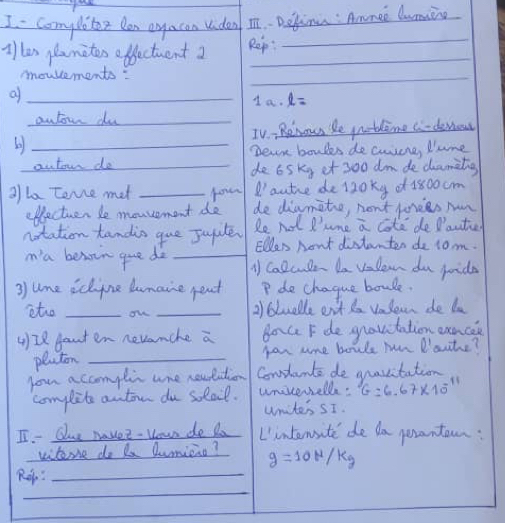 I.- Complétez les espaces vides
1) Les planètes effectuent 2
mouvements :
a)
autour du
b)
autour de
2) La Terre met pour
effectuer le mouvement de
rotation tandis que Jupiter
n'a besoin que de
3) Une éclipse lunaire peut
être ou
4) Il faut en revanche à
pluton
pour accomplir une revolution
complète autour du Soleil.
II.- Que savez-vous de la
vitesse de la lumière ?
Rép :
III.- Définis : Année lumière
Rép :
1 a.l =
IV.- Résous le problème ci-dessous
Deux boules de cuivre, l'une
de 65 kg et 300 dm de diamètre,
l'autre de 120 kg et 1800 cm
de diamètre, sont posées sur
le sol l'une à côté de l'autre.
Elles sont distantes de 10 m.
1) Calculer la valeur du poids
P de chaque boule.
2) Quelle est la valeur de la
force F de gravitation exercée
par une boule sur l'autre ?
Constante de gravitation
universelle : G = 6.67 x 10¹¹
unités SI.
L'intensité de la pesanteur :
g = 10 N/kg